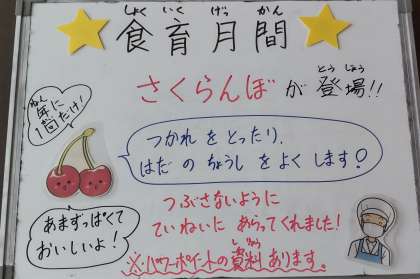 しょく いく げっ かん
食育月間
とう じょう
さくらんぼが登場!!
ねん
年に
1回だけ!
つかれをとったり、
はだのちょうしをよくします?
あまずっぱくて
おいしいよ!
つぶさないように
ていねいにあらってくれました!
しりょう
※パワーポイントの資料あります。